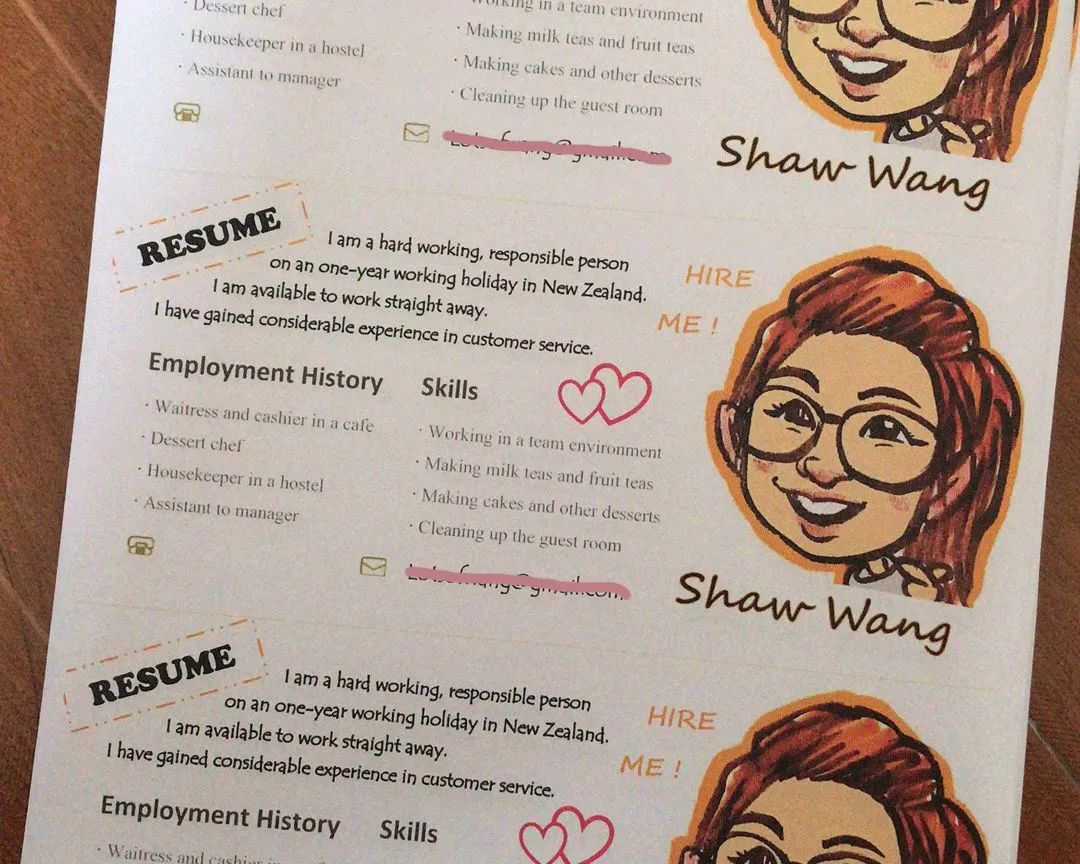 · Dessert chef
· Housekeeper in a hostel
· Assistant to manager
Working in a team environment
· Making milk teas and fruit teas
· Making cakes and other desserts
· Cleaning up the guest room
Shaw Wang
RESUME
I am a hard working, responsible person
on an one-year working holiday in New Zealand.
I am available to work straight away.
I have gained considerable experience in customer service.
HIRE
ME !
Employment History
· Waitress and cashier in a cafe
· Dessert chef
· Housekeeper in a hostel
· Assistant to manager
Skills
· Working in a team environment
· Making milk teas and fruit teas
· Making cakes and other desserts
· Cleaning up the guest room
Shaw Wang
RESUME
I am a hard working, responsible person
on an one-year working holiday in New Zealand.
I am available to work straight away.
I have gained considerable experience in customer service.
HIRE
ME !
Employment History
· Waitress and cashier in
Skills